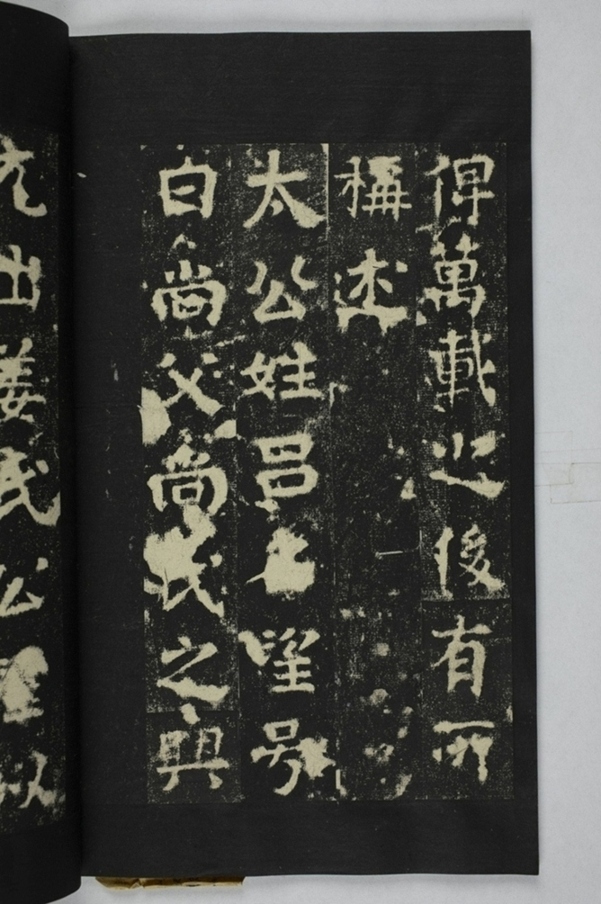 得萬載之後有所
稱述
太公姓呂望号
曰尚父尚氏之興
出姜氏公望